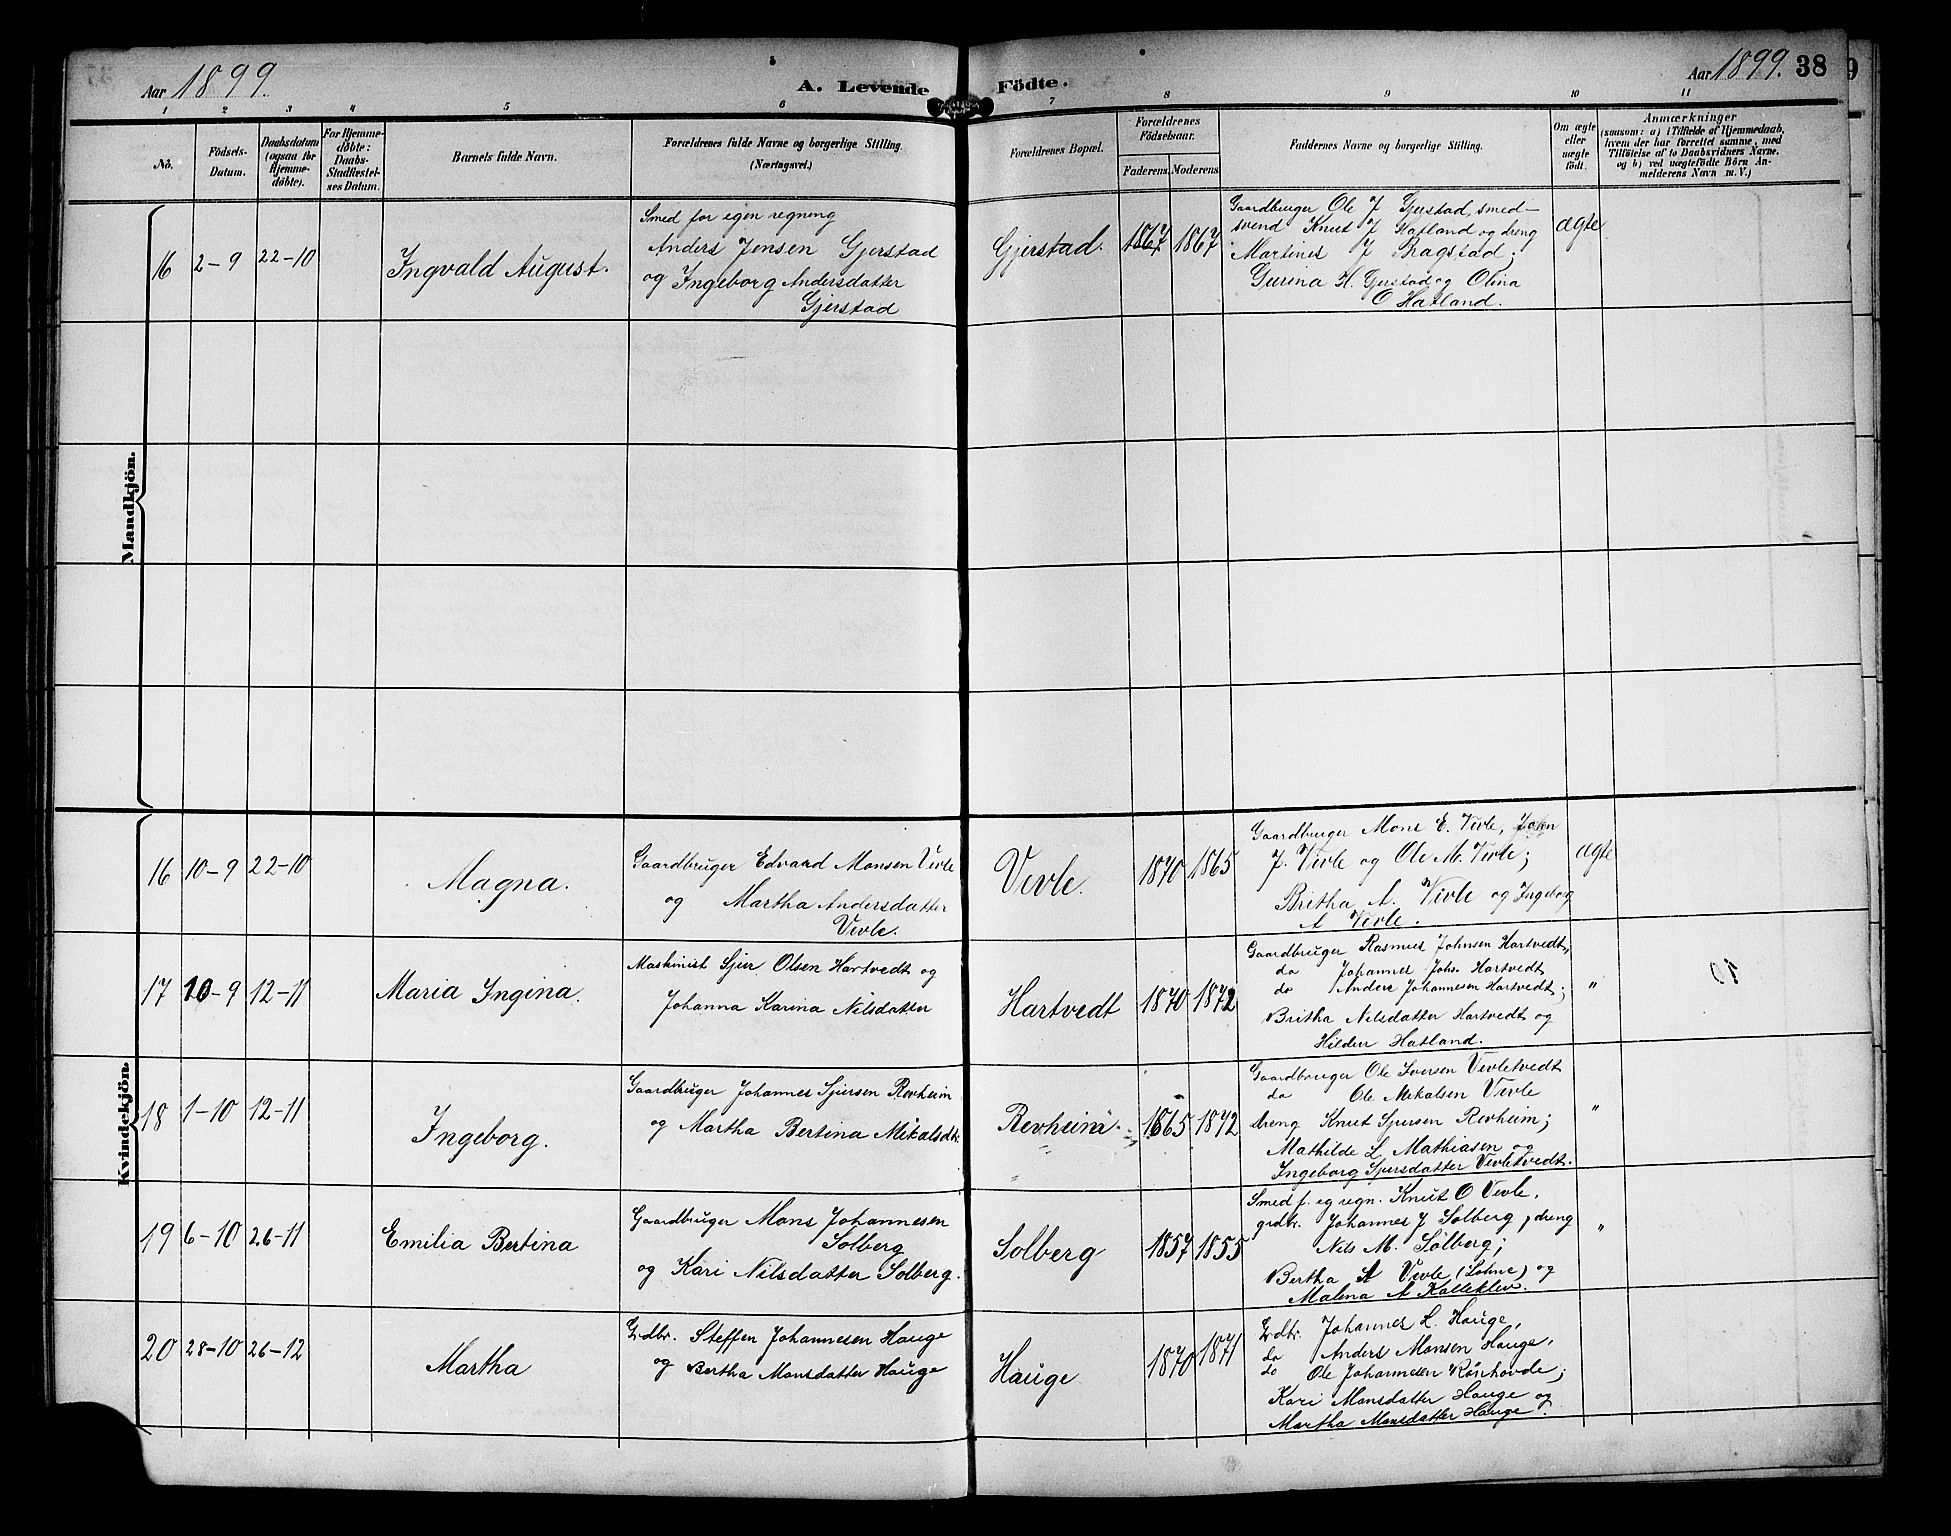 Aar 1899.
A. Levende Födte.
Aar 1899. 38
9
1 2 3 4 5 6 7 8 9 10 11
No.
Födsels-
Datum.
Daabsdatum
(ogsaa for
Hjemme-
døbte).
For Hjemme-
døbte:
Daabs-
Stadfæstel-
ses Datum.
Barnets fulde Navn.
Forældrenes fulde Navne og borgerlige Stilling.
(Næringsvei.)
Forældrenes Bopæl.
Forældrenes
Födselsaar.
Faderens. Moderens
Faddernes Navne og borgerlige Stilling.
Om ægte
eller
uægte
födt.
Anmærkninger
(saasom: a) i Tilfælde af Hjemmedaab,
hvem der har forrettet samme, med
Tilföielse af to Daabsvidners Navne.
og b) ved uægtefödte Börn An-
melderens Navn m. V.)
Mandkjön.
16 2-9 22-10
Ingvald August.
Smed for egen regning
Anders Jensen Gjerstad
og Ingeborg Andersdatter
Gjerstad
Gjerstad.
1867 1867
Gaardbruger Ole J Gjerstad, smed-
svend Knut J Hatland og dreng
Martines J Bragstad;
Gurina H. Gjerstad og Olina
O Hatland.
ægte
Kvindekjön.
16 10-9 22-10
Magna.
Gaardbruger Edvard Monsen Vevle
og Martha Andersdatter
Vevle.
Vevle.
1870 1865
Gaardbruger Mons E. Vevle, John
J. Vevle og Ole M. Vevle;
Britha A. Vevle og Ingeborg
A Vevle.
ægte
17 10-9 12-11
Maria Ingina.
Maskinist Sjur Olsen Hartvedt og
Johanna Karina Nilsdatter
Hartvedt
1870 1872
Gaardbruger Rasmus Johnsen Hartvedt,
do Johannes Johs. Hartvedt
do Anders Johannesen Hartvedt;
Britha Nilsdatter Hartvedt og
Hildur Hatland.
"
18 1-10 12-11
Ingeborg.
Gaardbruger Johannes Sjursen Revheim
og Martha Bertina Mikalsdtr.
Revheim.
1865 1872
Gaardbruger Ole Iversen Vevletvedt
do Ole Mikalsen Vevle
dreng Knut Sjursen Revheim;
Mathilde L Mathiasen og
Ingeborg Sjursdatter Vevletvedt.
"
19 6-10 26-11
Emilia Bertina
Gaardbruger Mons Johannesen
Solberg
og Kari Nilsdatter Solberg.
Solberg
1857 1855
Smed f. eg regn. Knut O Vevle,
grdbr. Johannes J Solberg, dreng
Nils M. Solberg;
Bertha A Vevle (Lohne) og
Malena A Kalleklev.
"
20 28-10 26-12
Martha
Grdbr. Steffen Johannesen Hauge
og Bertha Monsdatter Hauge
Hauge
1870 1871
Grdbr. Johannes L. Hauge,
do Anders Monsen Hauge,
do Ole Johannesen
Kari Monsdatter Hauge og
Martha Monsdatter Hauge.